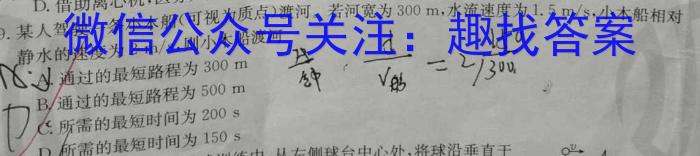 D. 借助离心机,
9. 某人驾 小木船(可视为质点)渡河, 若河宽为 300 m, 水流速度为 1.5 m/s, 小木船相对
静水的速度为
微信公众号关注：趣找答案
A. 通过的最短路程为 300 m
B. 通过的最短路程为 500 m
C. 所需的最短时间为 200 s
D. 所需的最短时间为 150 s
从左侧球台中心处, 将球沿垂直于